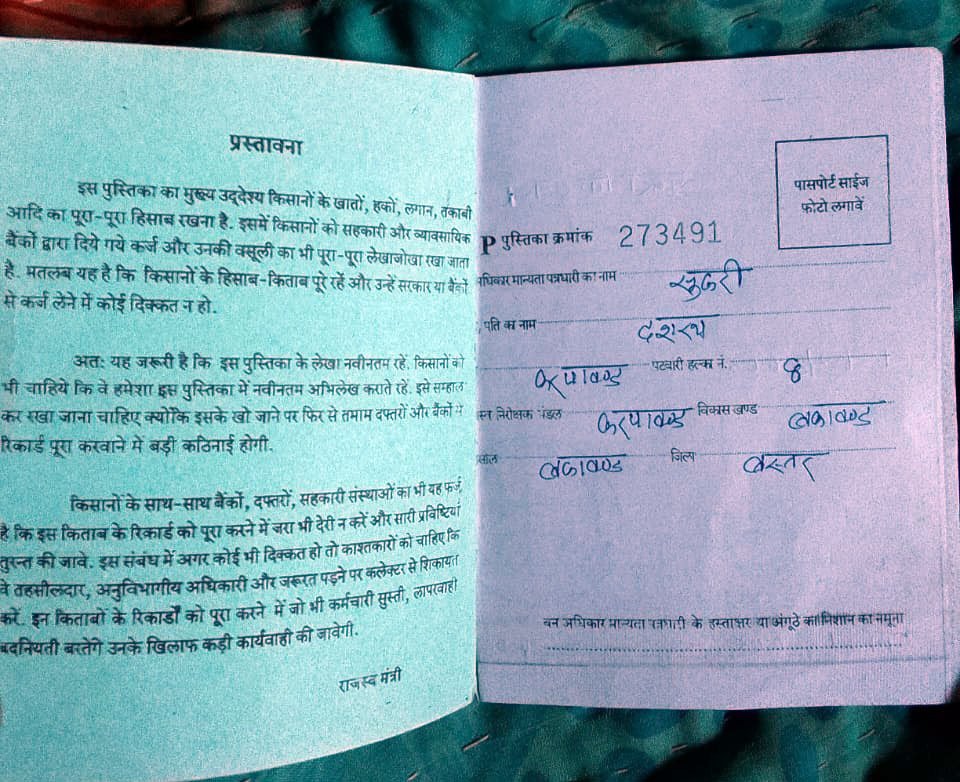 प्रस्तावना
इस पुस्तिका का मुख्य उद्देश्य किसानों के खातों, हकों, लगान, तकाबी
आदि का पूरा-पूरा हिसाब रखना है. इसमें किसानों को सहकारी और व्यावसायिक
बैंकों द्वारा दिये गये कर्ज और उनकी वसूली का भी पूरा-पूरा लेखाजोखा रखा जाता
है. मतलब यह है कि किसानों के हिसाब-किताब पूरे रहें और उन्हें सरकार या बैंकों
से कर्ज लेने में कोई दिक्कत न हो.
अतः यह जरूरी है कि इस पुस्तिका के लेखा नवीनतम रहें. किसानों को
भी चाहिये कि वे हमेशा इस पुस्तिका में नवीनतम अभिलेख कराते रहें. इसे सम्हाल
कर रखा जाना चाहिए क्योंकि इसके खो जाने पर फिर से तमाम दफ्तरों और बैंकों से
रिकार्ड पूरा करवाने में बड़ी कठिनाई होगी.
किसानों के साथ-साथ बैंकों, दफ्तरों, सहकारी संस्थाओं का भी यह फर्ज
है कि इस किताब के रिकार्ड को पूरा करने में जरा भी देरी न करें और सारी प्रविष्टियां
तुरन्त की जावे. इस संबंध में अगर कोई भी दिक्कत हो तो काश्तकारों को चाहिए कि
वे तहसीलदार, अनुविभागीय अधिकारी और जरूरत पड़ने पर कलेक्टर से शिकायत
करें. इन किताबों के रिकार्डों को पूरा करने में जो भी कर्मचारी सुस्ती, लापरवाही
बदनियती बरतेंगे उनके खिलाफ कड़ी कार्यवाही की जावेगी.
राजस्व मंत्री
पासपोर्ट साईज
फोटो लगावें
P पुस्तिका क्रमांक 273491
अधिकार मान्यता पत्रधारी का नाम सुकरी
पति का नाम दशरथ
करपावण्ड पटवारी हल्का नं. 8
निरीक्षक मंडल करपावण्ड विकास खण्ड बकावण्ड
बकावण्ड जिला बस्तर
वन अधिकार मान्यता पत्रधारी के हस्ताक्षर या अंगूठे का निशान का नमूना